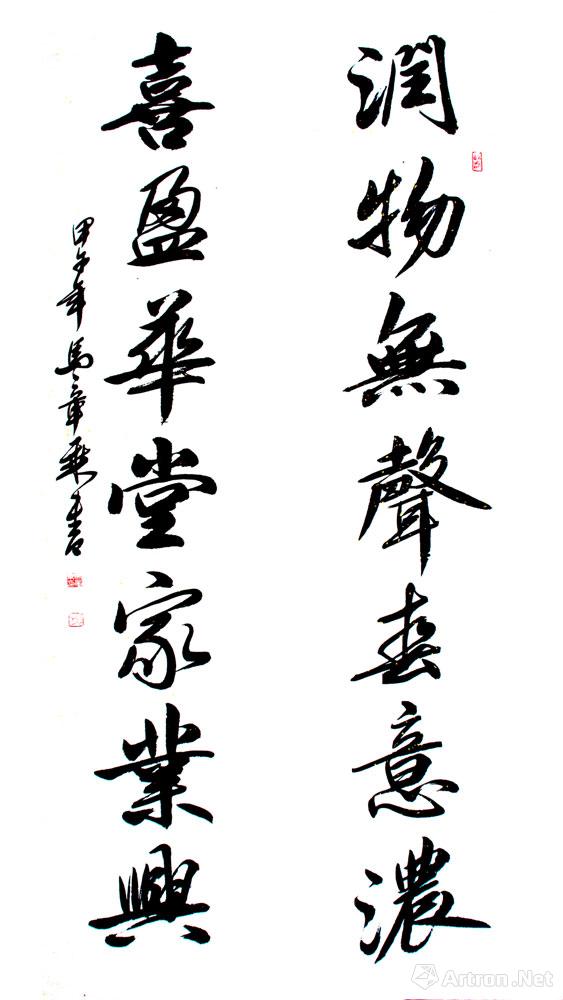 潤物無聲春意濃
喜盈華堂家業興
甲午年 馬章乘書
Artron.Net